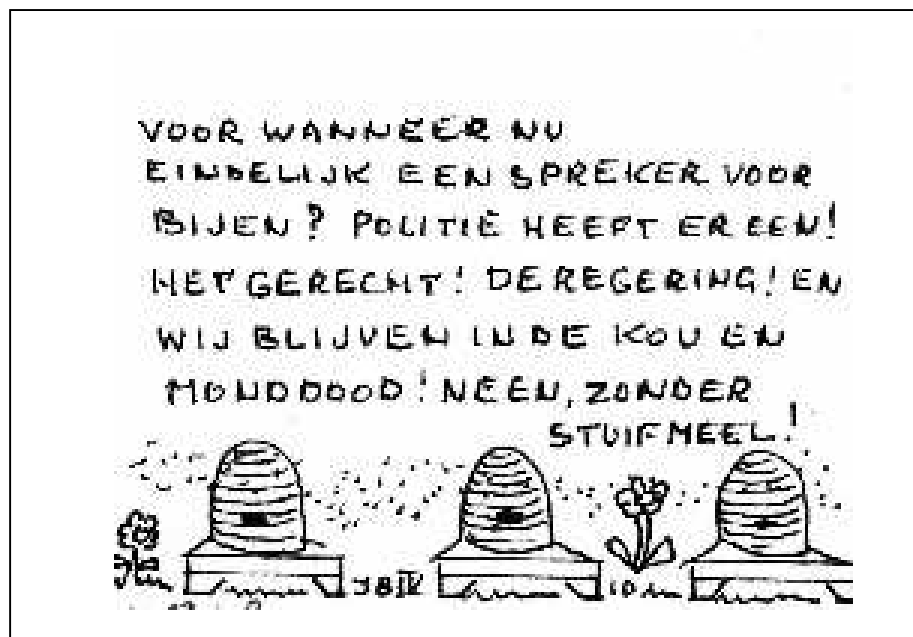 VOOR WANNEER NU
EINDELIJK EEN SPREKER VOOR
BIJEN? POLITIE HEEFT ER EEN!
HET GERECHT! DE REGERING! EN
WIJ BLIJVEN IN DE KOU EN
MONDDOOD! NEEN, ZONDER
STUIFMEEL!
JBIV 10